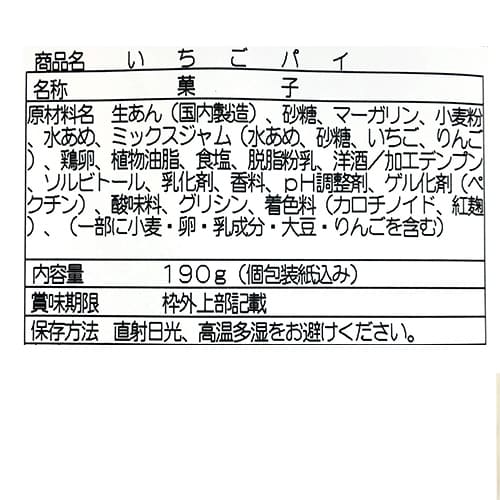 商品名 いちごパイ
名称 菓子
原材料名 生あん（国内製造）、砂糖、マーガリン、小麦粉
、水あめ、ミックスジャム（水あめ、砂糖、いちご、りんご
）、鶏卵、植物油脂、食塩、脱脂粉乳、洋酒／加工デンプン
、ソルビトール、乳化剤、香料、ｐＨ調整剤、ゲル化剤（ペ
クチン）、酸味料、グリシン、着色料（カロチノイド、紅麹
）、（一部に小麦・卵・乳成分・大豆・りんごを含む）
内容量 190g（個包装紙込み）
賞味期限 枠外上部記載
保存方法 直射日光、高温多湿をお避けください。